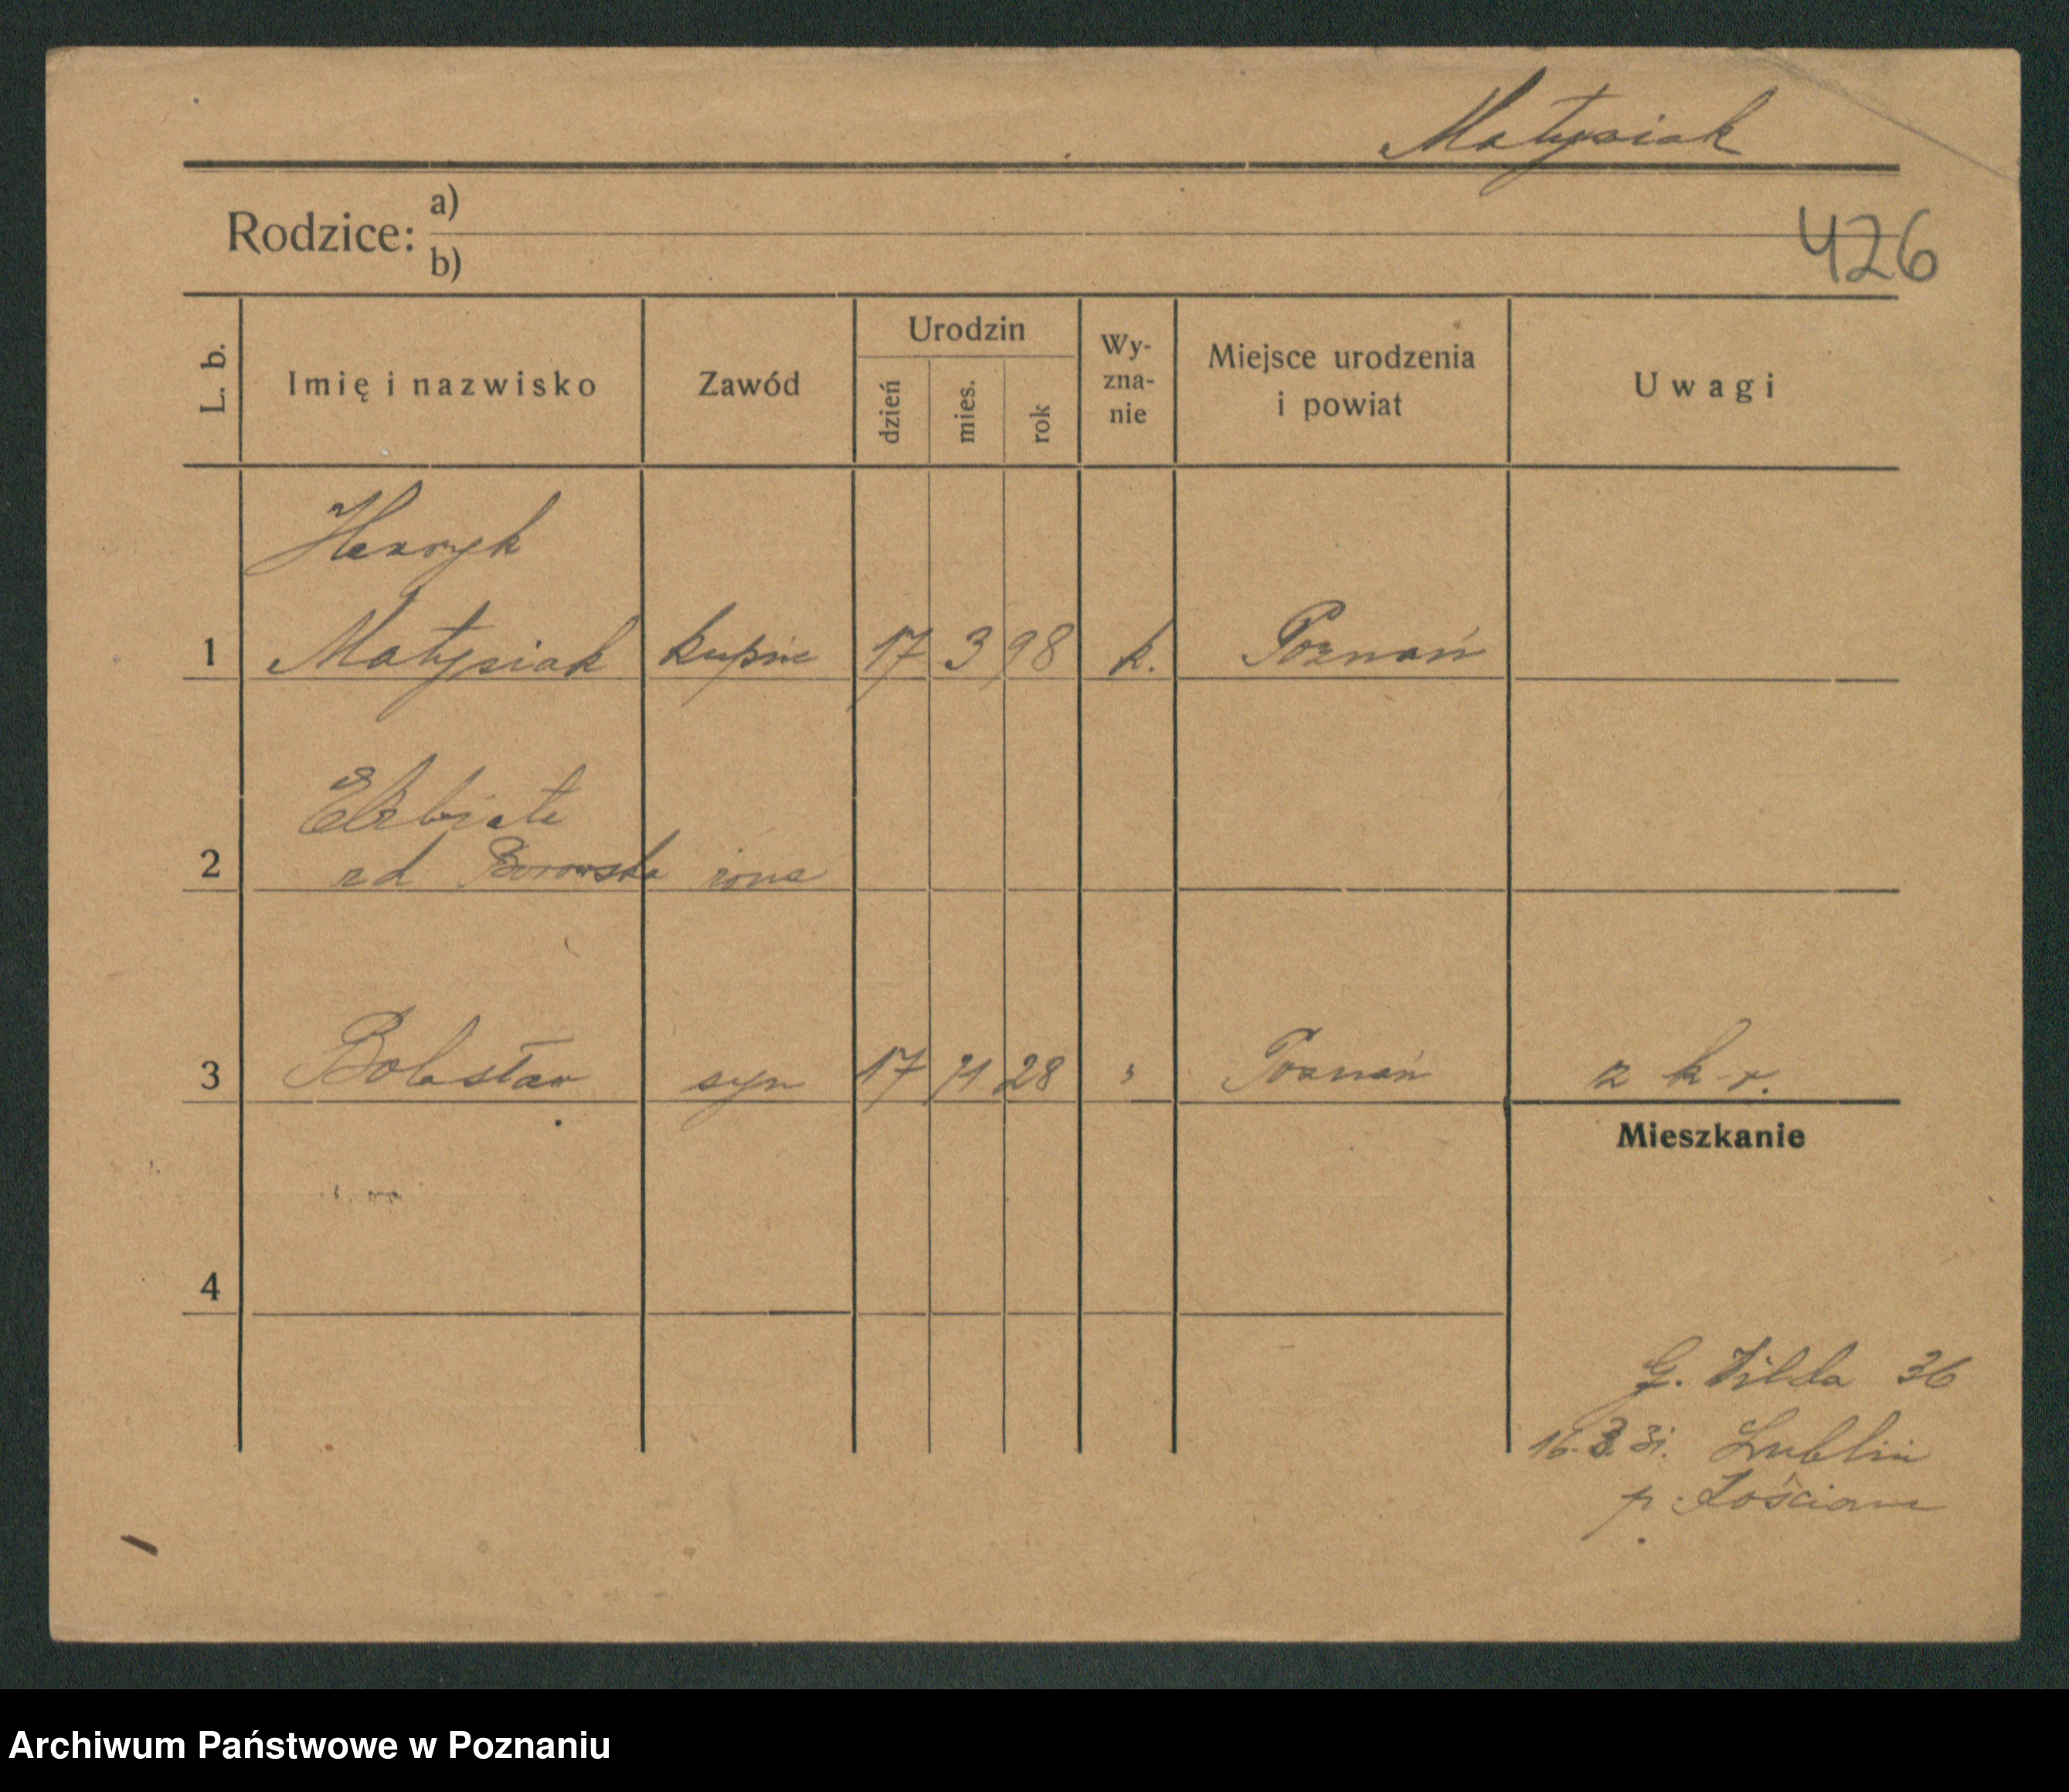 Matysiak
Rodzice: a)
b)
426
L. b. Imię i nazwisko Zawód Urodzin dzień mies. rok Wy-zna-nie Miejsce urodzenia i powiat Uwagi
Henryk
1 Matysiak kupiec 17 3 98 k. Poznań
Elżbieta
2 zd Borowska żona
3 Bolesław syn 17 11 28 " Poznań z k-r.
Mieszkanie
4
G. Wilda 36
16. 3. 31. Lublin
p.
Archiwum Państwowe w Poznaniu